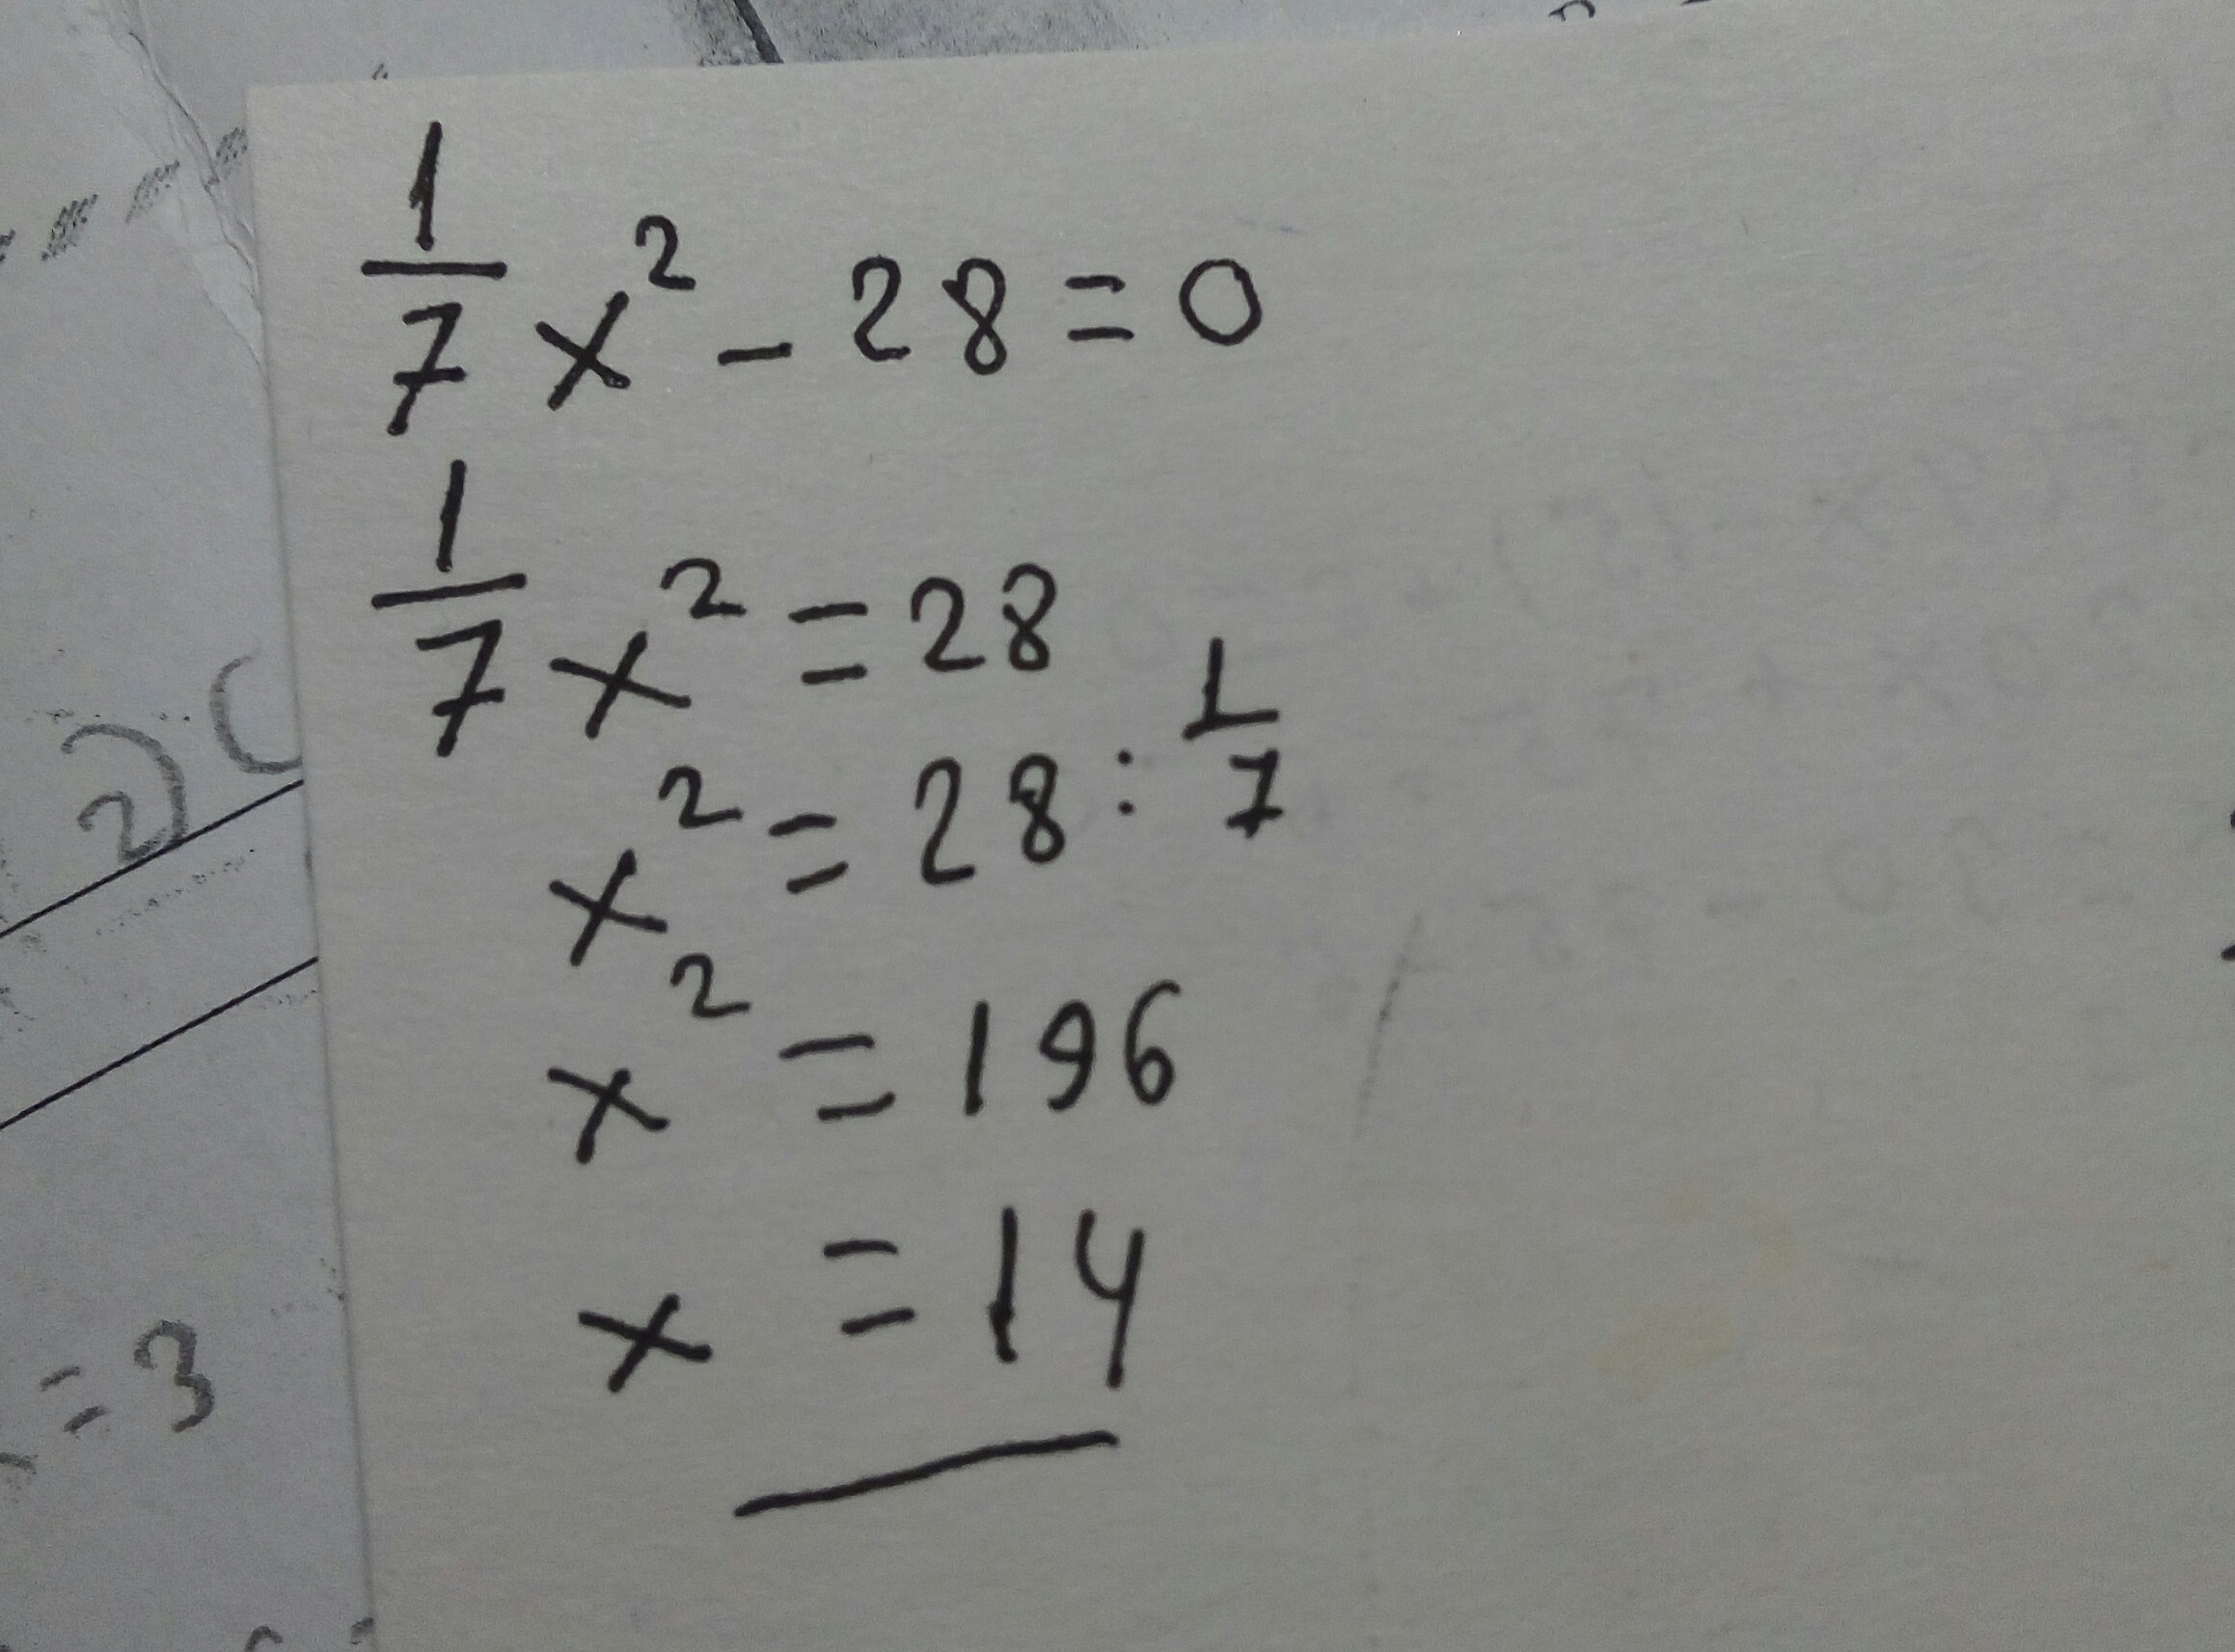 1/7 x² - 28 = 0
1/7 x² = 28
x² = 28 : 1/7
x² = 196
x = 14
2) (
= 3